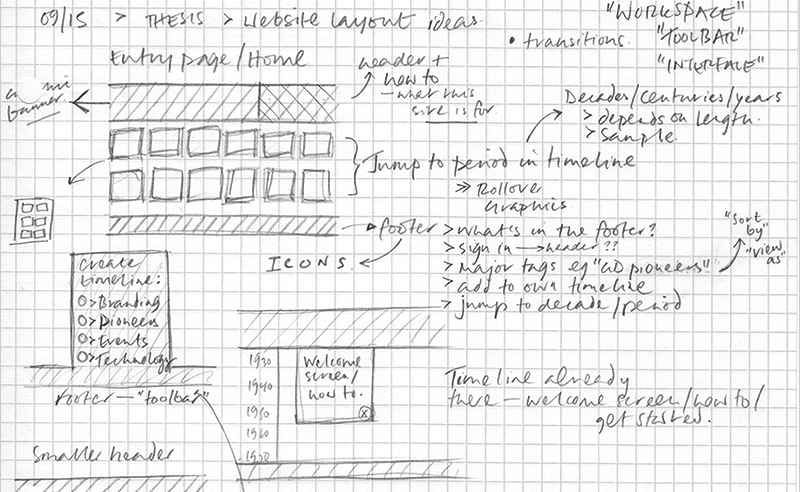 09/15 > THESIS > Website layout ideas
"WORKSPACE"
• transitions. "TOOLBAR"
"INTERFACE"
Entry page/Home
header +
how to
— what this
site is for.
banner
Decades/centuries/years
> depends on length.
> sample.
Jump to period in timeline
>> Rollover
Graphics
footer
> what's in the footer?
> sign in → header??
> major tags eg "GD pioneers"
> add to own timeline
> jump to decade/period
"sort
by"
"view
as"
ICONS
Create
timeline:
O> Branding
O> Pioneers
O> Events
O> Technology
footer — "toolbar"
1930
1940
1950
1960
Welcome
screen/
how to.
x
Timeline already
there — welcome screen/how to/
get started.
Smaller header